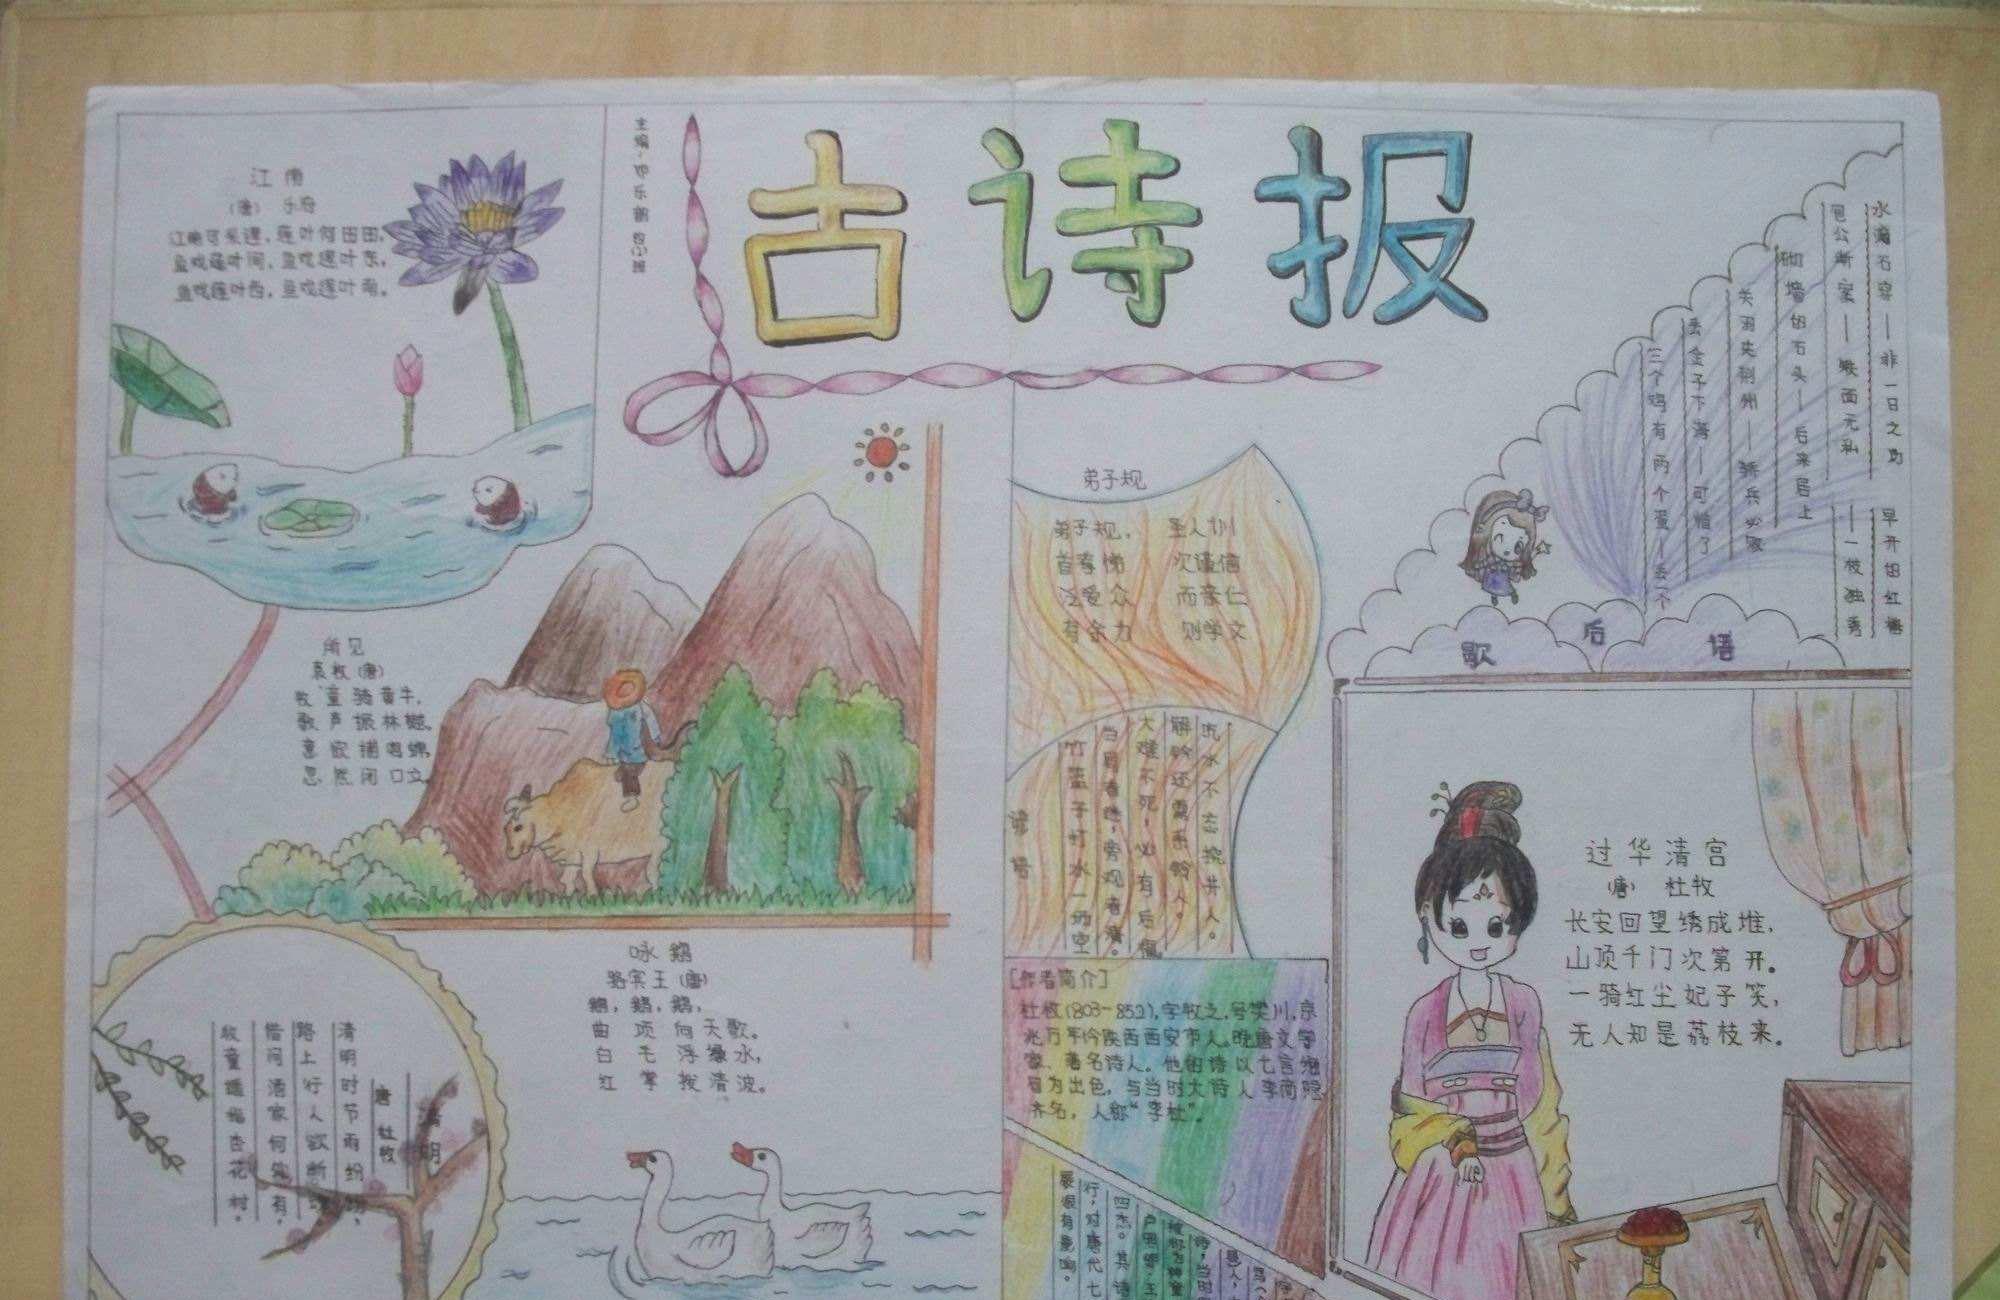 古诗报
江南
(唐) 乐府
江南可采莲，莲叶何田田，
鱼戏莲叶间，鱼戏莲叶东，
鱼戏莲叶西，鱼戏莲叶南。
所见
袁枚(唐)
牧童骑黄牛，
歌声振林樾。
意欲捕鸣蝉，
忽然闭口立。
清明
唐 杜牧
清明时节雨纷纷，
路上行人欲断魂
借问酒家何处有，
牧童遥指杏花村。
咏鹅
骆宾王(唐)
鹅，鹅，鹅，
曲项向天歌。
白毛浮绿水，
红掌拨清波。
弟子规
弟子规， 圣人训
首孝悌 次谨信
泛爱众 而亲仁
有余力 则学文
谚语
吃水不忘挖井人。
解铃还需系铃人。
大难不死，必有后福
当局者迷，旁观者清。
竹篮子打水一场空
[作者简介]
杜牧(803-852)，字牧之，号樊川，京
兆万年今陕西西安市人。晚唐文学
家、著名诗人。他的诗以七言绝
句为出色，与当时大诗人李商隐
齐名，人称“李杜”。
四杰。其诗
行，对唐代七
展很有影响。
歇后语
水滴石穿——非一日之功
早开的红梅——一枝独秀
包公断案——铁面无私
砌墙的石头——后来居上
关羽失荆州——骄兵必败
丢金子下海——可惜了
三个鸡有两个蛋——丢一个
过华清宫
(唐) 杜牧
长安回望绣成堆，
山顶千门次第开。
一骑红尘妃子笑，
无人知是荔枝来。